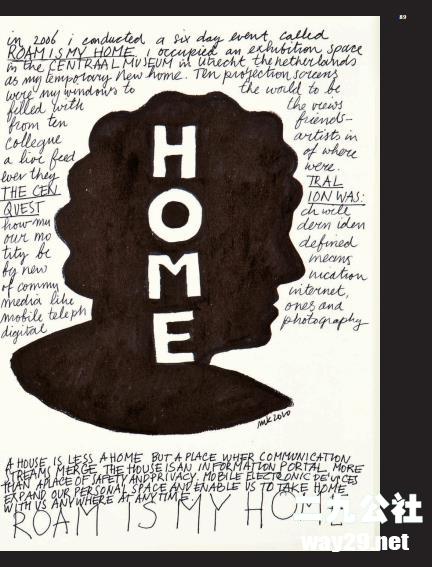 89
in 2006 i conducted a six day event, called
ROAM IS MY HOME. i occupied an exhibition space
in the CENTRAAL MUSEUM in utrecht the netherlands
as my temporary new home. Ten projection screens
were my windows to the world to be
filled with the views
from ten friends-
collegue artists in
a live feed of where
ever they were.
THE CEN TRAL
QUEST ION WAS:
how mu ch will
our mo dern iden
tity be defined
by new means
of commu nication
media like internet,
mobile teleph ones and
digital photography
HOME
MK 2010
A HOUSE IS LESS A HOME BUT A PLACE WHER COMMUNICATION
STREAMS MERGE. THE HOUSE IS AN INFORMATION PORTAL, MORE
THAN A PLACE OF SAFETY AND PRIVACY. MOBILE ELECTRONIC DEVICES
EXPAND OUR PERSONAL SPACE AND ENABLE US TO TAKE HOME
WITH US ANYWHERE AT ANYTIME.
ROAM IS MY HOME
二九公社
way29.net